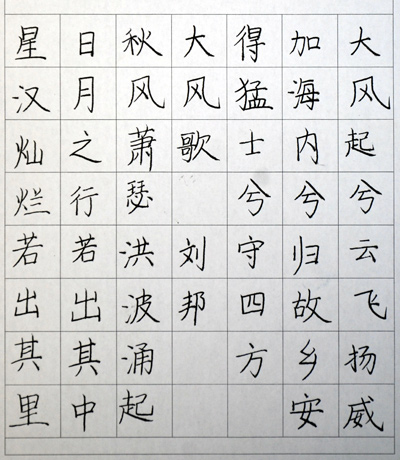 大风起兮云飞扬威
加海内兮归故乡安
得猛士兮守四方
大风歌 刘邦
秋风萧瑟洪波涌起
日月之行若出其中
星汉灿烂若出其里